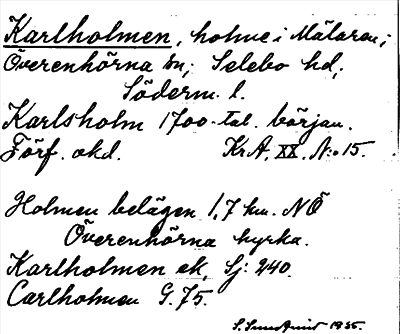 Karlholmen, holme i Mälaren;
Överenhörna sn; Selebo hd;
Söderm. l.
Karlsholm 1700-tal. början.
Förf. okd. Kr A. XX. N:o 15.
Holmen belägen 1,7 km. NÖ
Överenhörna kyrka.
Karlholmen ek, Sj: 240.
Carlholmen G. 75.
S. 1935.